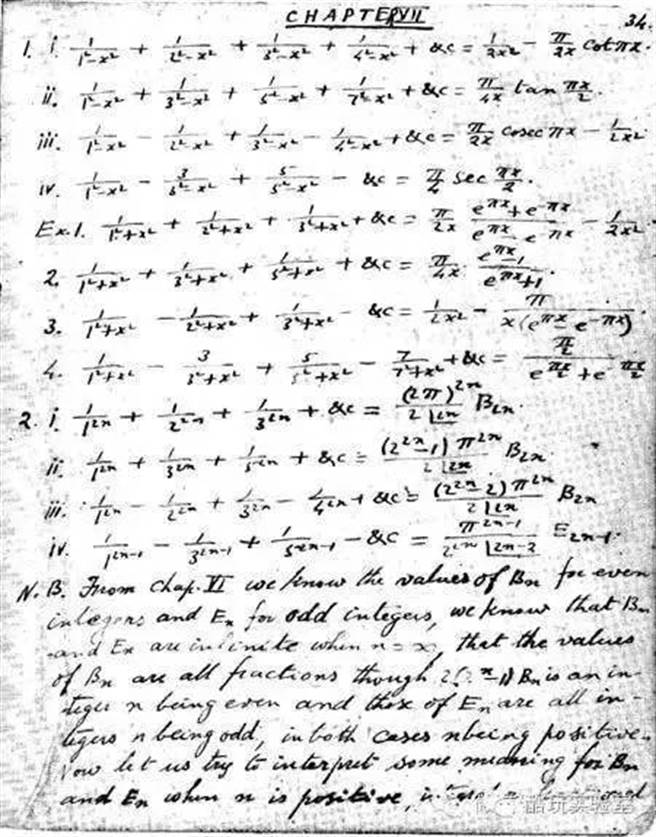 CHAPTER VII
34.
1. i. 1/(1²-x²) + 1/(2²-x²) + 1/(3²-x²) + 1/(4²-x²) + &c = 1/(2x²) - π/(2x) cot πx.
ii. 1/(1²-x²) + 1/(3²-x²) + 1/(5²-x²) + 1/(7²-x²) + &c = π/(4x) tan πx/2.
iii. 1/(1²-x²) - 1/(2²-x²) + 1/(3²-x²) - 1/(4²-x²) + &c = π/(2x) cosec πx - 1/(2x²)
iv. 1/(1²-x²) - 3/(3²-x²) + 5/(5²-x²) - &c = π/4 sec πx/2.
Ex.1. 1/(1²+x²) + 1/(2²+x²) + 1/(3²+x²) + &c = π/(2x) (e^πx + e^-πx)/(e^πx - e^-πx) - 1/(2x²)
2. 1/(1²+x²) + 1/(3²+x²) + 1/(5²+x²) + &c = π/(4x) (e^πx - 1)/(e^πx + 1).
3. 1/(1²+x²) - 1/(2²+x²) + 1/(3²+x²) - &c = 1/(2x²) - π/(x(e^πx - e^-πx))
4. 1/(1²+x²) - 3/(3²+x²) + 5/(5²+x²) - 7/(7²+x²) + &c = (π/2)/(e^(πx/2) + e^(-πx/2))
2. i. 1/1^2n + 1/2^2n + 1/3^2n + &c = (2π)^2n/(2 |2n) B_2n.
ii. 1/1^2n + 1/3^2n + 1/5^2n + &c = (2^2n - 1) π^2n/(2 |2n) B_2n
iii. 1/1^2n - 1/2^2n + 1/3^2n - 1/4^2n + &c = (2^2n - 2) π^2n/(2 |2n) B_2n
iv. 1/1^(2n-1) - 1/3^(2n-1) + 1/5^(2n-1) - &c = π^(2n-1)/(2^2n |2n-2) E_2n-1.
N.B. From chap. VI we know the values of Bn for even
integers and En for odd integers, we know that Bn
and En are infinite when n = ∞, that the values
of Bn are all fractions though 2(2^n - 1) Bn is an in-
teger n being even and those of En are all in-
tegers n being odd, in both cases n being positive.
Now let us try to interpret some meaning for Bn
and En when n is positive,
酷玩实验室